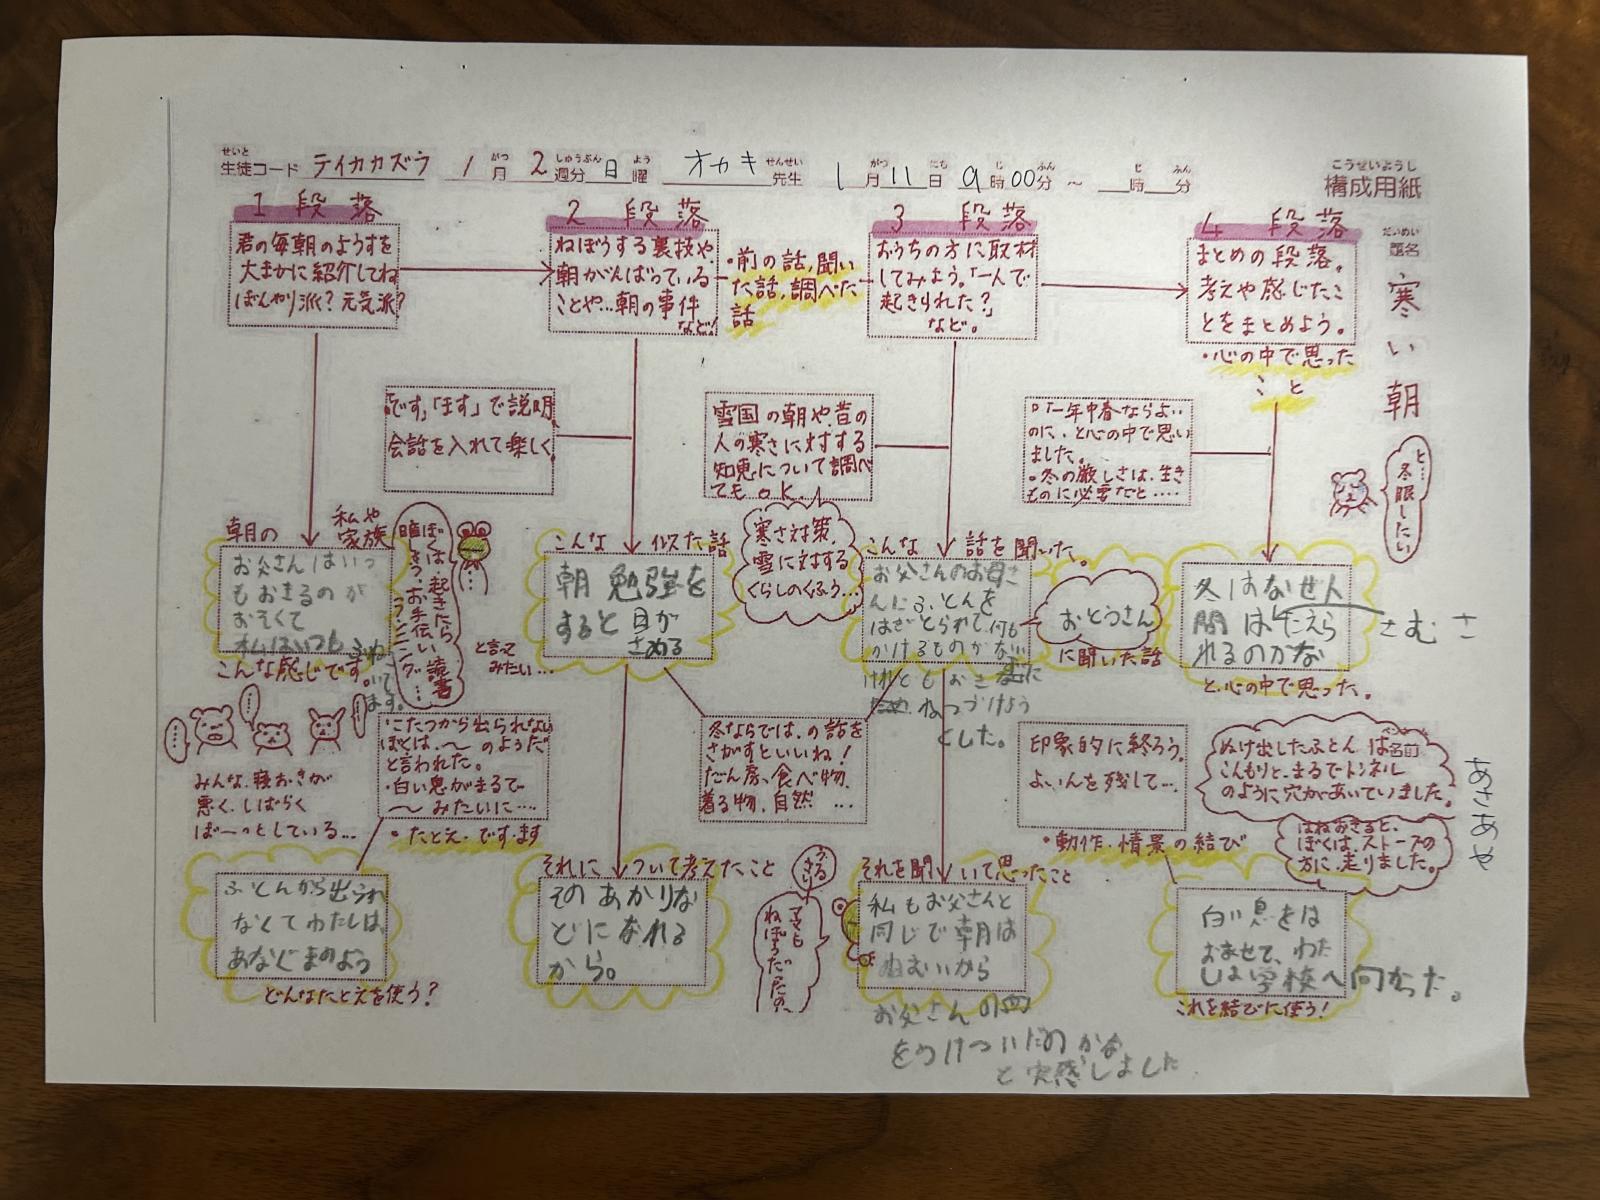 せいと
生徒コード テイカカズラ 1月 2週分 日曜 オカキ先生 1月11日 9時00分 ~ 時 分
がつ しゅうぶん よう せんせい がつ にち じ ふん じ ふん
こうせいようし
構成用紙
だいめい
題名
寒い朝
1段落
君の毎朝のようすを
大まかに紹介してね
ぼんやり派?元気派?
2段落
ねぼうする裏技や、
朝がんばっている
ことや…朝の事件
など!
・前の話,聞い
た話,調べた
話
3段落
おうちの方に取材
してみよう。「一人で
起きられた?」
など。
4段落
まとめの段落。
考えや感じたこ
とをまとめよう。
・心の中で思った
こと
「です」「ます」で説明
会話を入れて楽しく。
雪国の朝や、昔の
人の寒さに対する
知恵について調べ
てもOK!
・「一年中春ならよい
のに、と心の中で思い
ました。
・冬の厳しさは、生き
ものに必要だと……
と…
冬眠したい
朝の 私や
家族
お父さんはいつ
もおきるのが
おそくて
私はいつも
います。
こんな感じです。
ぼくは、起きたら
お手伝い、読書
ランニング…
と言って
みたい…
こんな 似た話
朝勉強を
すると目が
さめる
寒さ対策、
雪に対する
くらしのくふう…
こんな 話を聞いた。
お父さんのお母さ
んにふとんを
はぎとられて、何も
かけるものがない
けれどもおきな
ねつづけよう
とした。
おとうさん
に聞いた話
冬はなぜ人
間はたえら
れるのかな
さむさ
と、心の中で思った。
みんな、寝おきが
悪く、しばらく
ぼーっとしている…
こたつから出られない
ぼくは、〜のようだ
と言われた。
・白い息がまるで
〜みたいに……
・たとえ・です・ます
冬ならでは、の話を
さがすといいね!
だん房、食べ物、
着る物、自然…
印象的に終ろう。
よいんを残して…
・動作・情景の結び
ぬけ出したふとんは
こんもりと、まるでトンネル
のように穴があいていました。
はねおきると、
ぼくは、ストーブの
方に走りました。
名前
あさあや
ふとんから出られ
なくてわたしは、
あなぐまのよう
どんなたとえを使う?
それに ついて考えたこと
そのあかりな
どになれる
から。
うるさい
ママも
ねぼうだったの〜
それを聞いて思ったこと
私もお父さんと
同じで朝は
ねむいから
お父さんの血
をうけついだのかな
と実感しました
白い息をは
おませて、わた
しは学校へ向かった。
これを結びに使う!